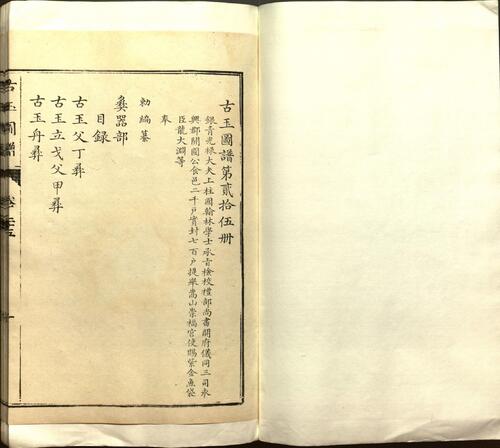 古玉圖譜第貳拾伍冊
銀青光祿大夫上柱國翰林學士承旨檢校禮部尚書開府儀同三司永
興郡開國公食邑二千戶實封七百戶提舉嵩山崇福宮使賜紫金魚袋
臣龍大淵等
奉
勅編纂
彝器部
目錄
古玉父丁彝
古玉立戈父甲彝
古玉舟彝
古玉圖譜